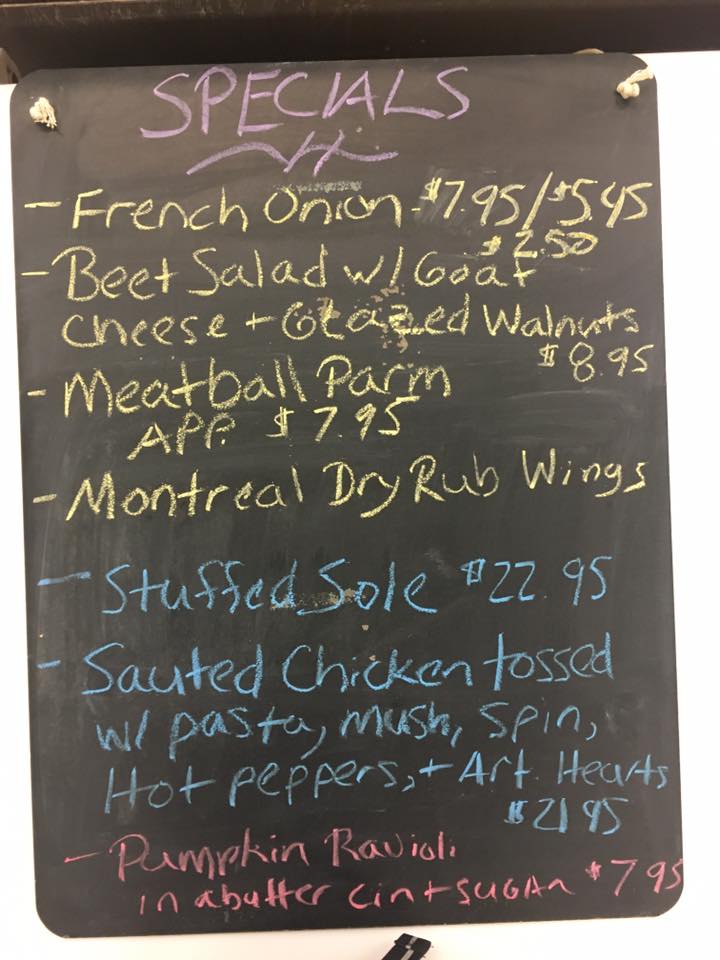 SPECIALS
- French Onion $7.95/$5.45
$2.50
- Beet Salad w/ Goat
cheese + Glazed Walnuts
$8.95
- Meatball Parm
APP. $7.95
- Montreal Dry Rub Wings
- Stuffed Sole $22.95
- Sauted Chicken tossed
w/ pasta, mush, spin,
Hot peppers, + Art. Hearts
$21.95
- Pumpkin Ravioli
in a butter cin + SUGAR $7.95